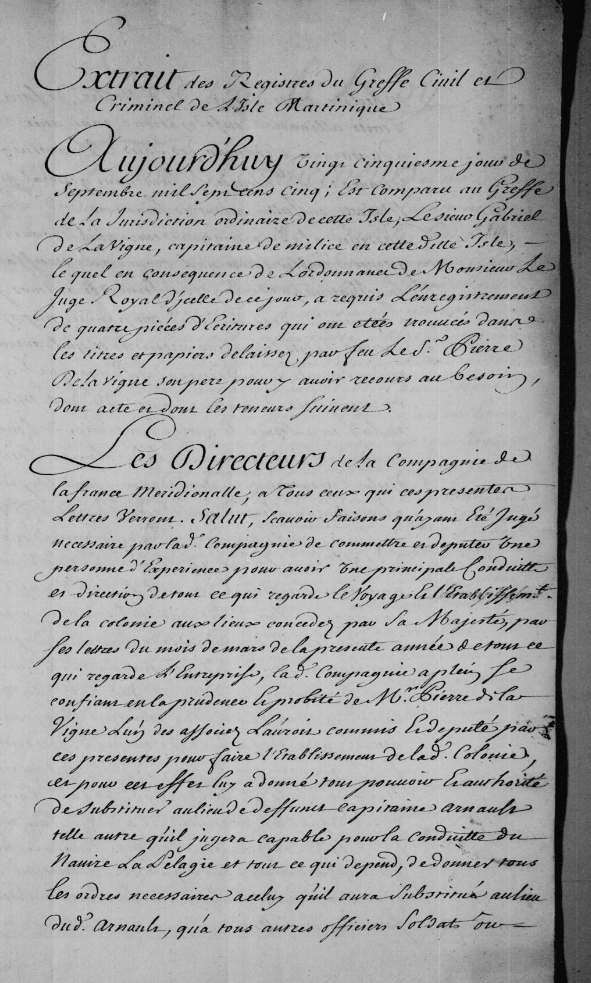 Extrait des Registres du Greffe Civil et
Criminel de L'Isle Martinique
Aujourd'huy vingt cinquiesme jour de
Septembre mil sept cens cinq; Est comparu au Greffe
de La Jurisdiction ordinaire de cette Isle, Le sieur Gabriel
de La Vigne, capitaine de milice en cette ditte Isle,
le quel en consequence de L'ordonnance de Monsieur Le
Juge Royal d'jcelle de ce jour, a requis L'énregistrement
de quatre piéces d'Ecritures qui ont etées trouvées dans
les titres et papiers delaissez par feu Le S.r Pierre
De la Vigne son pere pour y avoir recours au besoin,
dont acte et dont les teneurs suivent.
Les Directeurs de la Compagnie de
la france Meridionalle, a Tous ceux qui ces presentes
Lettres Verront. Salut, scavoir faisons qu'ayant Eté Jugé
necessaire par lad. Compagnie de commettre et deputer une
personne d'Experience pour avoir une principale Conduitte
et direction de tout ce qui regarde le Voyage Et l'Etablissem.t
de la colonie aux lieux concedez par Sa Majesté, par
ses lettres du mois de mars de la presente année & tout ce
qui regarde l'Entreprise, lad. Compagnie a plein se
confiant en la prudence Et probité de M.r Pierre de la
Vigne L'un des associez L'auroit commis Et deputé par
ces presentes pour faire l'Etablissement de lad. Colonie,
et pour cet effet luy a donné tout pouvoir Et authorité
de substituer au lieu de deffunct capitaine Arnault
telle autre qu'il jugera capable pour la conduitte du
Navire La Pelagie et tout ce qui depend, de donner tous
les ordres necessaires a celuy qu'il aura substitué au lieu
dud. Arnault, qu'a tous autres officiers Soldats ou